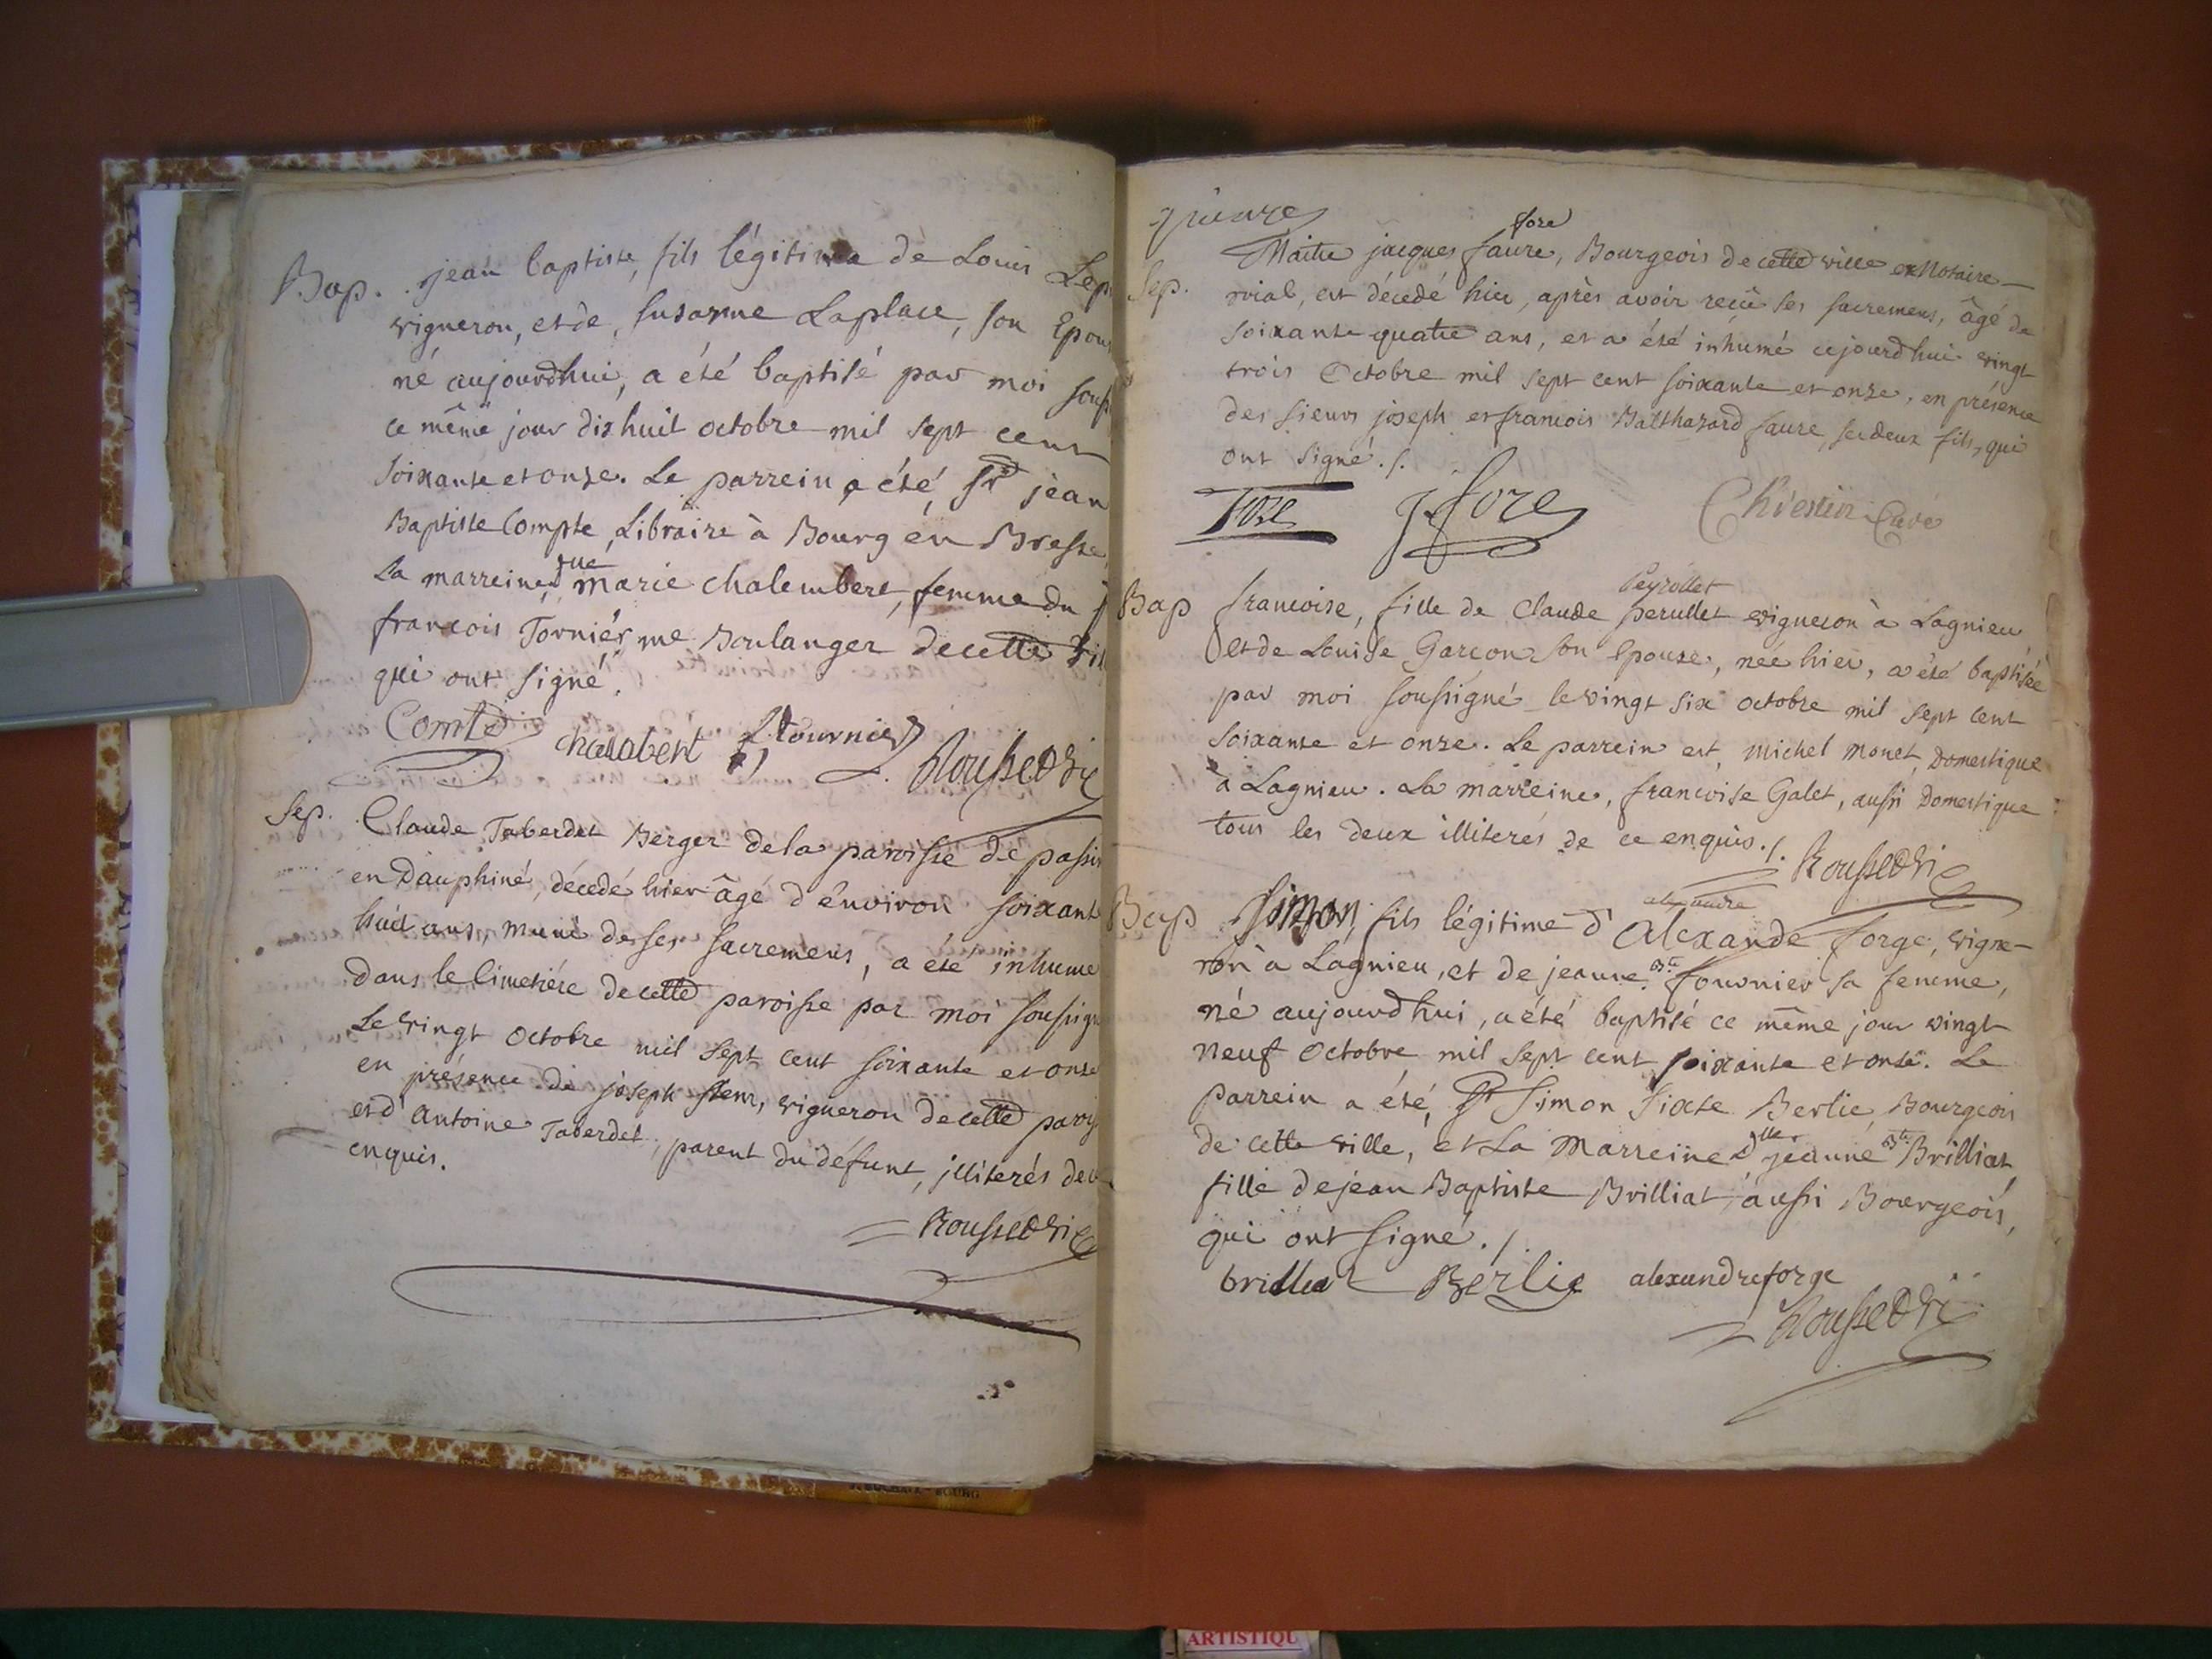 Bap. jean baptiste, fils légitime de Louis Lep
vigneron, et de, Susanne Laplace, son Epous
né aujourdhui, a été baptisé par moi souss
ce même jour dix huit octobre mil sept cent
soixante et onze. Le parrein a été, Sr jean
Baptiste Compte, Libraire à Bourg en Bresse,
La marreine, dlle marie chalembert, femme du
francois Tornier, me Boulanger de cette vil
qui ont signé.
Comte chalabert f tournier Roussedri
Sep. Claude Taberdet Berger de la paroisse de passin
en Dauphiné, décedé hier âgé d'environ soixante
huit ans, muni de ses sacremens, a été inhumé
dans le Cimetiére de cette paroisse par moi soussign
Le vingt octobre mil sept cent soixante et onze
en présence de joseph vigneron de cette parois
et d'antoine Taberdet, parent du défunt, illiterés de ce
enquis.
Roussedri
quinze
fore
Maitre jacques faure, Bourgeois de cette ville ex Notaire
Sep. roial, est décedé hier, après avoir reçû ses sacremens, âgé de
soixante quatre ans, et a été inhumé cejourdhui vingt
trois Octobre mil sept cent soixante et onze, en présence
des sieurs joseph et francois Balthazard faure, ses deux fils, qui
ont signé./.
Fore J fore Chrestin Curé
Peyrollet
Bap francoise, fille de Claude perullet vigneron à Lagnieu
et de Louise Garcon son Epouse, née hier, a été baptisée
par moi soussigné le vingt six octobre mil sept cent
soixante et onze. Le parrein est, michel monet, Domestique
à Lagnieu. La marreine, francoise Galet, aussi Domestique
tous les deux illiterés de ce enquis./. Roussedri
alexandre
Bap Simon, fils légitime d'Alexande forge, vigne-
ron à Lagnieu, et de jeanne Bte fournier sa femme,
né aujourdhui, a été baptisé ce même jour vingt
neuf octobre mil sept cent soixante et onze. Le
parrein a été, Sr Simon Sixte Berlie, Bourgeois
de cette ville, et La Marreine dlle jeanne Bte Brilliat,
fille de jean Baptiste Brilliat, aussi Bourgeois,
qui ont signé./.
brilliat Berlie alexandre forge
Roussedri
ARTISTIQU